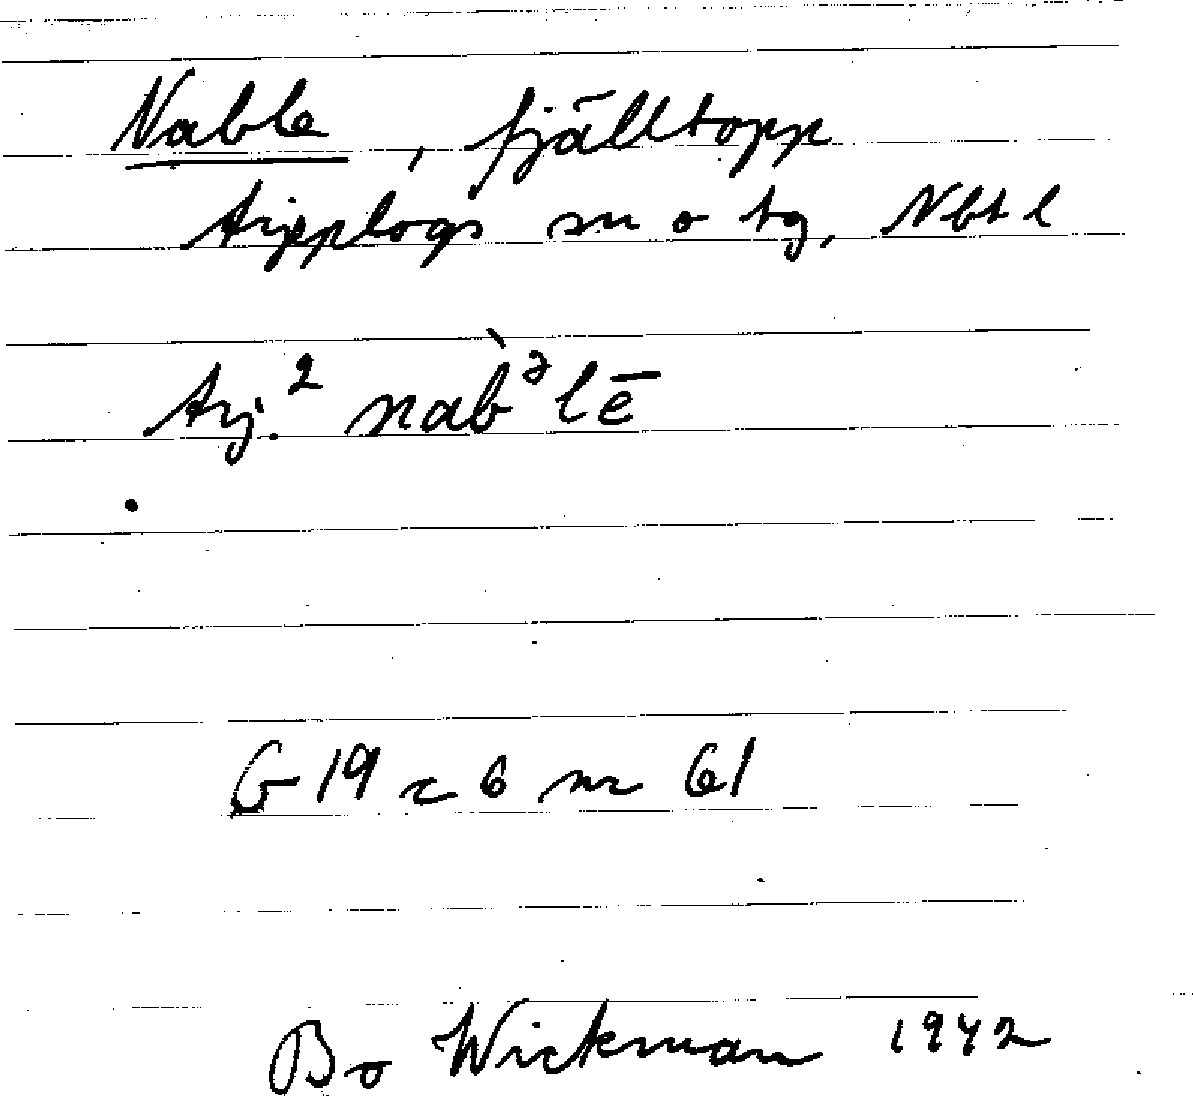 Nable, fjälltopp
Arjeplogs sn o tg, Nbtl
Arj.² nab̀ᵊlē
G 19 c 6 nr 61
Bo Wickman 1942